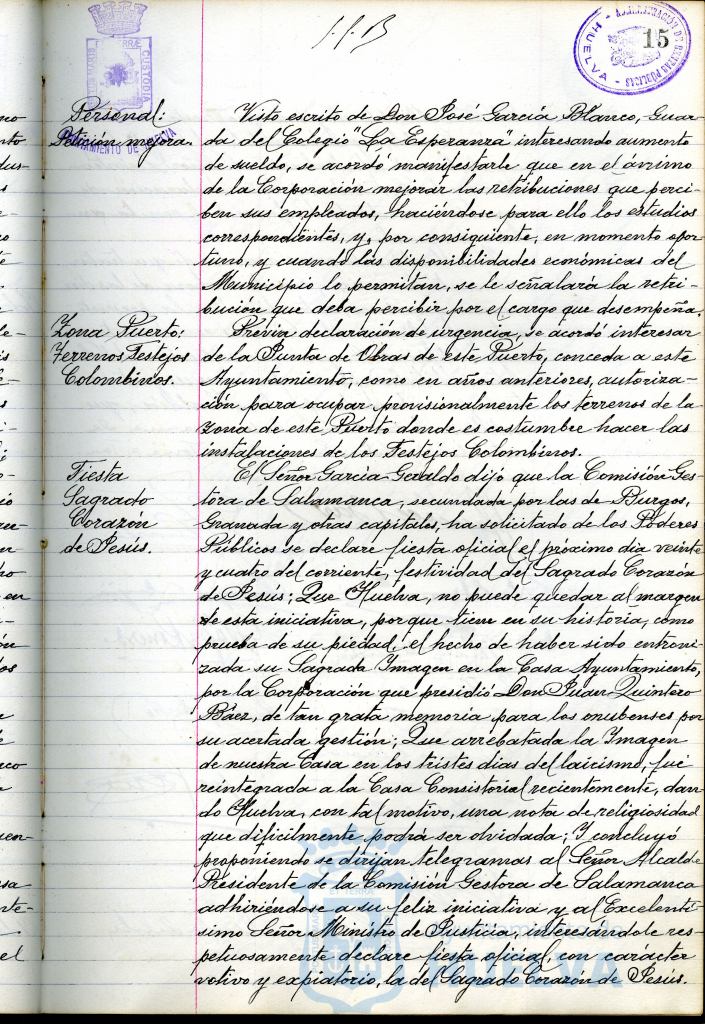 15
HUELVA
CUSTODIA
AYUNTAMIENTO DE HUELVA
Personal:
Petición mejora.
Visto escrito de Don José García Blanco, Guar-
da del Colegio "La Esperanza" interesando aumento
de sueldo, se acordó manifestarle que en el ánimo
de la Corporación mejorar las retribuciones que perci-
ben sus empleados, haciéndose para ello los estudios
correspondientes, y, por consiguiente, en momento opor-
tuno, y cuando las disponibilidades económicas del
Municipio lo permitan, se le señalará la retri-
bución que deba percibir por el cargo que desempeña.
Zona Puerto:
Terrenos Festejos
Colombinos.
Previa declaración de urgencia, se acordó interesar
de la Junta de Obras de este Puerto, conceda a este
Ayuntamiento, como en años anteriores, autoriza-
ción para ocupar provisionalmente los terrenos de la
zona de este Puerto donde es costumbre hacer las
instalaciones de los Festejos Colombinos.
Fiesta
Sagrado
Corazón
de Jesús.
El Señor García-Geraldo dijo que la Comisión Ges-
tora de Salamanca, secundada por las de Burgos,
Granada y otras capitales, ha solicitado de los Poderes
Públicos se declare fiesta oficial el próximo dia veinte
y cuatro del corriente, festividad del Sagrado Corazón
de Jesús; Que Huelva, no puede quedar al margen
de esta iniciativa, porque tiene en su historia, como
prueba de su piedad, el hecho de haber sido entroni-
zada su Sagrada Imagen en la Casa Ayuntamiento,
por la Corporación que presidió Don Juan Quintero
Báez, de tan grata memoria para los onubenses por
su acertada gestión; Que arrebatada la Imagen
de nuestra Casa en los tristes dias del laicismo, fue
reintegrada a la Casa Consistorial recientemente, dan-
do Huelva, con tal motivo, una nota de religiosidad
que dificilmente podrá ser olvidada; Y concluyó
proponiendo se dirijan telegramas al Señor Alcalde
Presidente de la Comisión Gestora de Salamanca
adhiriéndose a su feliz iniciativa y al Excelentí-
simo Señor Ministro de Justicia interesándole res-
petuosamente declare fiesta oficial, con carácter
votivo y expiatorio, la del Sagrado Corazón de Jesús.
HUELVA